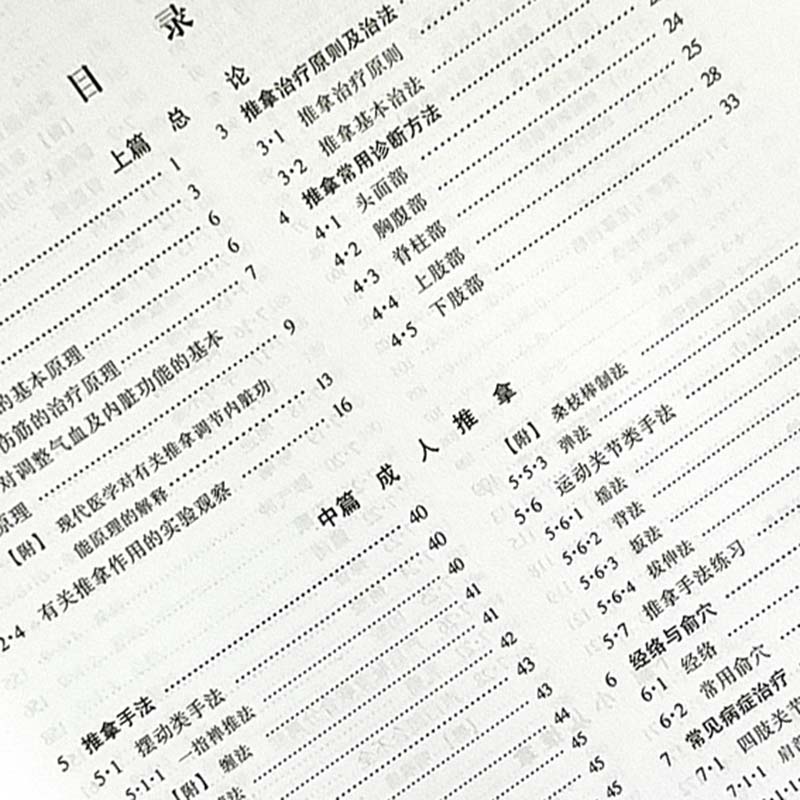 目 录
上篇 总 论
1
3
6
6
7
的基本原理
伤筋的治疗原理
9
对调整气血及内脏功能的基本
原理
13
【附】 现代医学对有关推拿调节内脏功
能原理的解释
16
2·4 有关推拿作用的实验观察
3 推拿治疗原则及治法
3·1 推拿治疗原则
3·2 推拿基本治法 24
4 推拿常用诊断方法
4·1 头面部 25
4·2 胸腹部
4·3 脊柱部 28
4·4 上肢部 33
4·5 下肢部
中篇 成 人 推 拿
5 推拿手法 40
5·1 摆动类手法 40
5·1·1 一指禅推法 40
【附】 缠法 41
41
42
43
43
44
45
45
【附】 桑枝棒制法
5·5·3 弹法
5·6 运动关节类手法
5·6·1 摇法
5·6·2 背法
5·6·3 扳法
5·6·4 拔伸法
5·7 推拿手法练习
6 经络与俞穴
6·1 经络
6·2 常用俞穴
7 常见病症治疗
7·1 四肢关节
7·1·1 肩